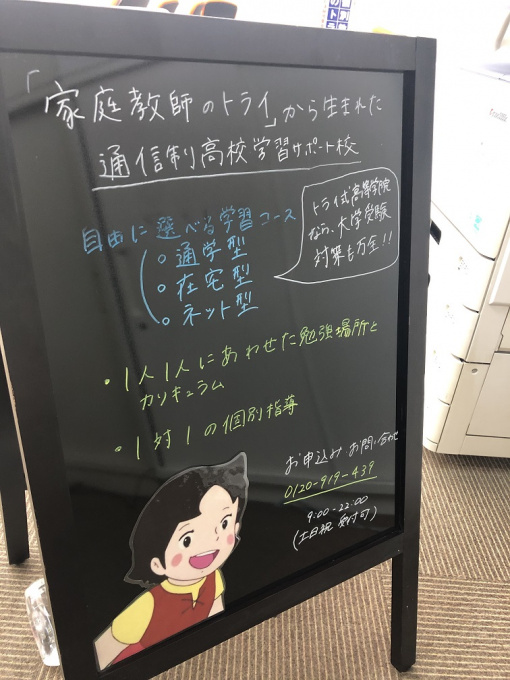 「家庭教師のトライ」から生まれた
通信制高校学習サポート校
自由に選べる学習コース
。通学型
。在宅型
。ネット型
トライ式高等学院
なら、大学受験
対策も万全!!
・1人1人にあわせた勉強場所と
カリキュラム
・1対1の個別指導
お申込み お問い合わせ
0120-919-439
9:00-22:00
(土日祝 受付可)